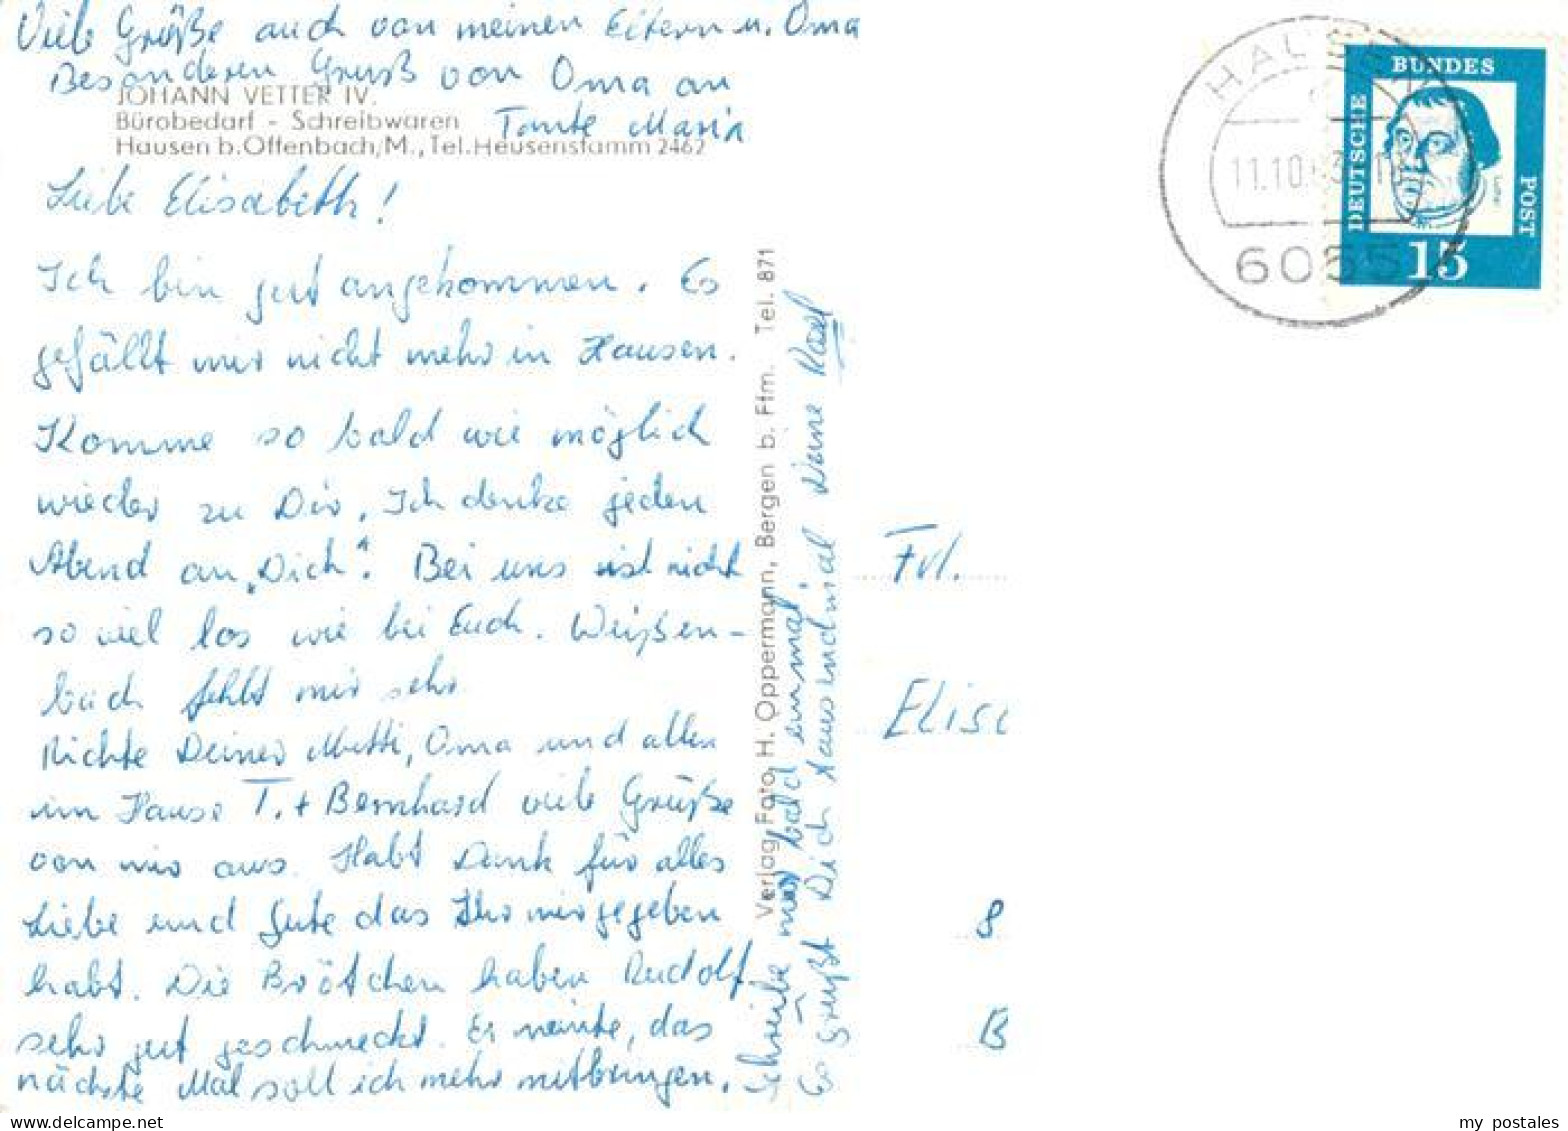 Viele Grüße auch von meinen Eltern u. Oma
Besonderen Gruß von Oma an
Tante Maria
JOHANN VETTER IV.
Bürobedarf - Schreibwaren
Hausen b. Offenbach/M., Tel. Heusenstamm 2462
Liebe Elisabeth!
Ich bin gut angekommen. Es
gefällt mir nicht mehr in Hausen.
Komme so bald wie möglich
wieder zu Dir. Ich denke jeden
Abend an „Dich“. Bei uns ist nicht
so viel los wie bei Euch. Weißen-
bach fehlt mir sehr
Richte Deiner Mutti, Oma und allen
im Hause T. + Bernhard viele Grüße
von mir aus. Habt Dank für alles
Liebe und Gute das Ihr mir gegeben
habt. Die Brötchen haben Rudolf
sehr gut geschmeckt. Er meinte, das
nächste Mal soll ich mehr mitbringen.
Schreibe mir bald einmal
Es grüßt Dich tausendmal Deine
Verlag Foto H. Oppermann, Bergen b. Ffm. Tel. 871
HAUSEN
11.10.63
6055
DEUTSCHE
BUNDES
POST
Luther
15
Frl.
Elise
8
B
my postales